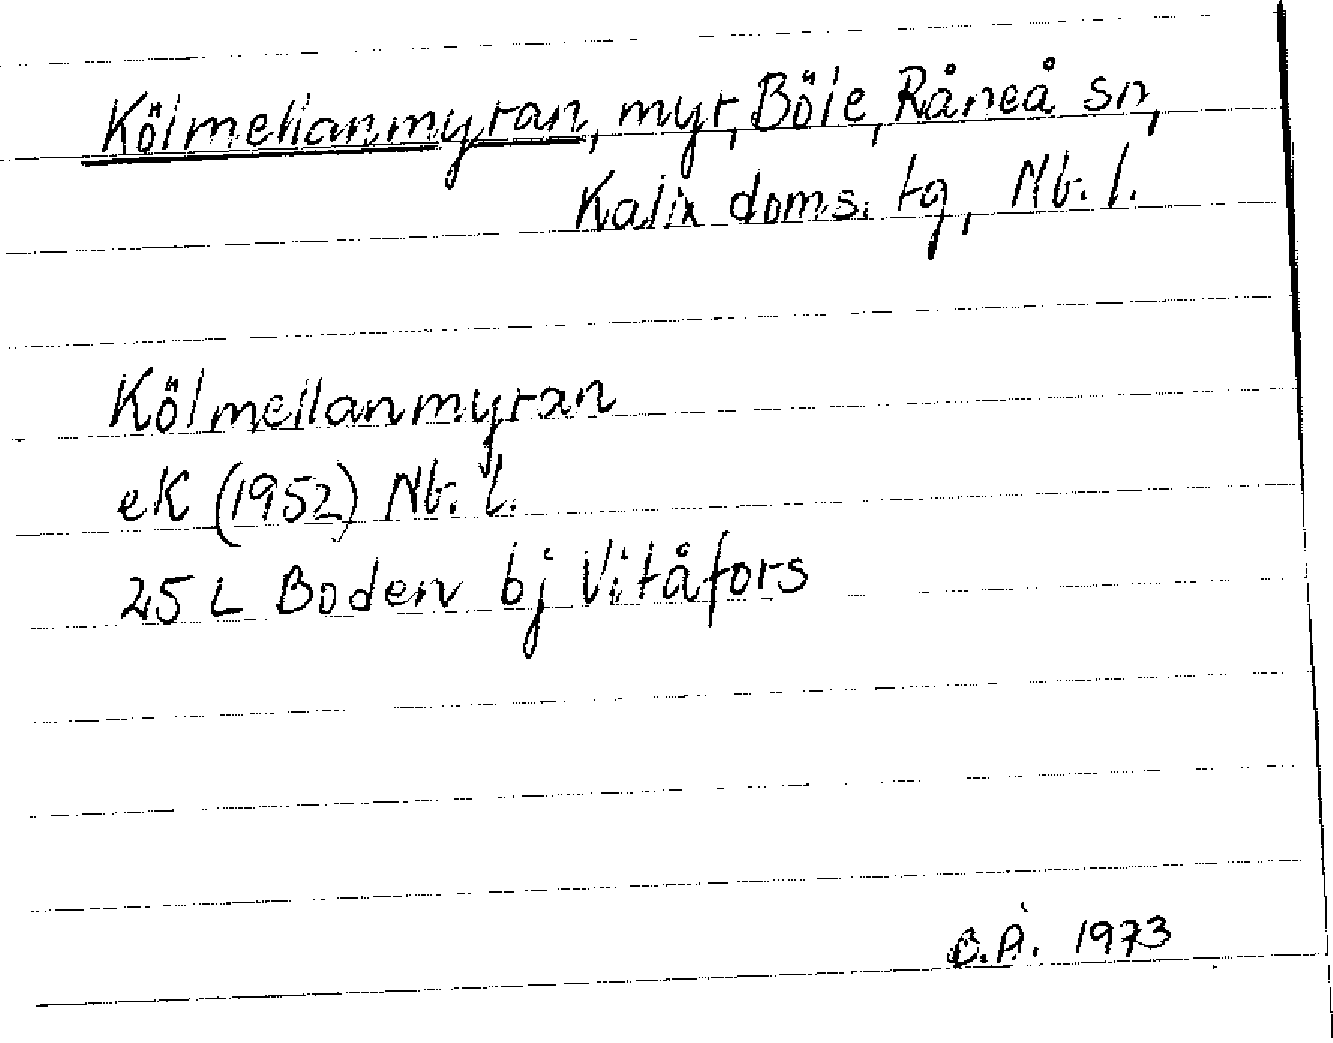 Kölmellanmyran, myr, Böle, Råneå sn,
Kalix doms. tg, Nb. l.
Kölmellanmyran
eK (1952) Nb. l.
25 L Boden bj Vitåfors
1973